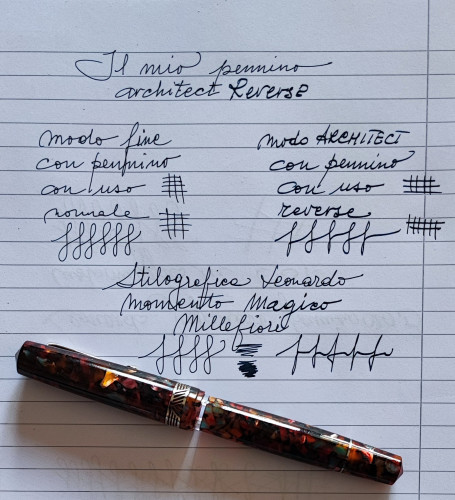 Il mio pennino
architect Reverse
modo fine
con pennino
con uso
normale
modo ARCHITECT
con pennino
con uso
reverse
ffffff
fffff
Stilografica Leonardo
momento Magico
Millefiori
ffff
fffff